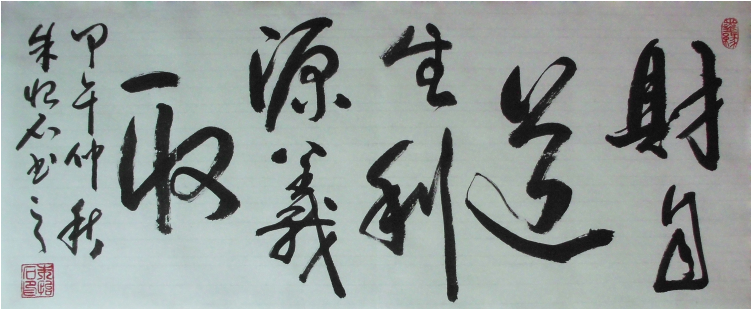 財自
道
生利
源義
取
甲午仲秋
朱石书之